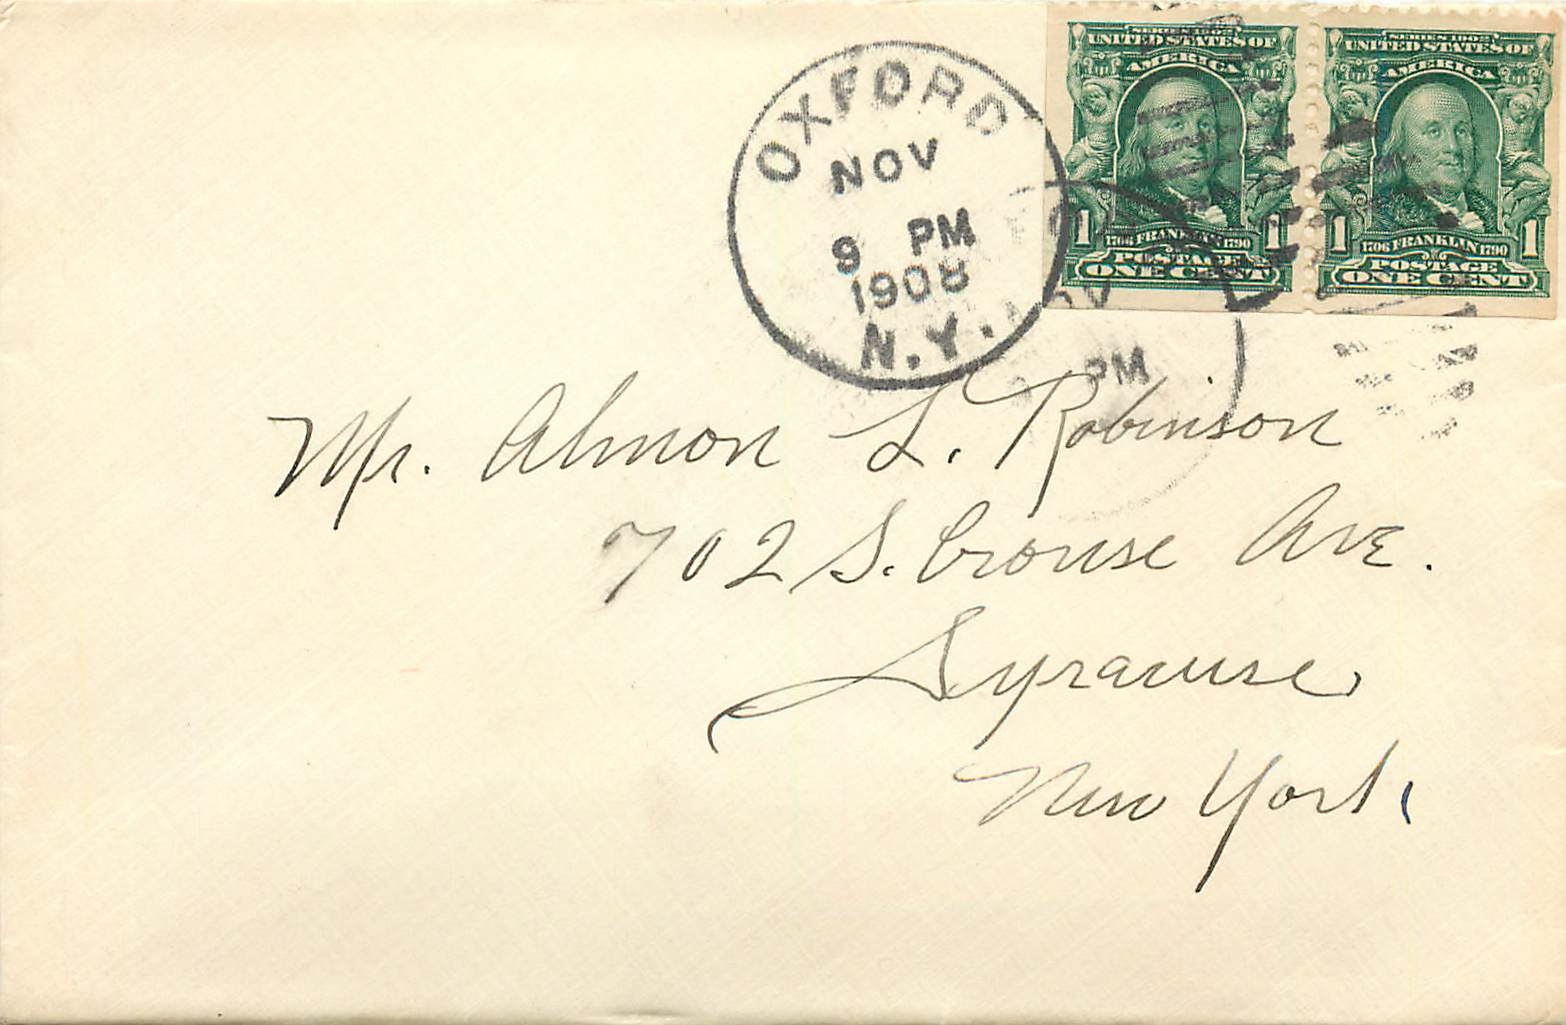 OXFORD
NOV
9 PM
1908
N.Y.
NOV
PM
SERIES 1902
UNITED STATES OF
AMERICA
1 1706 FRANKLIN 1790 1
POSTAGE
ONE CENT
SERIES 1902
UNITED STATES OF
AMERICA
1 1706 FRANKLIN 1790 1
POSTAGE
ONE CENT
Mr. Almon L. Robinson
702 S. Crouse Ave.
Syracuse,
New York,